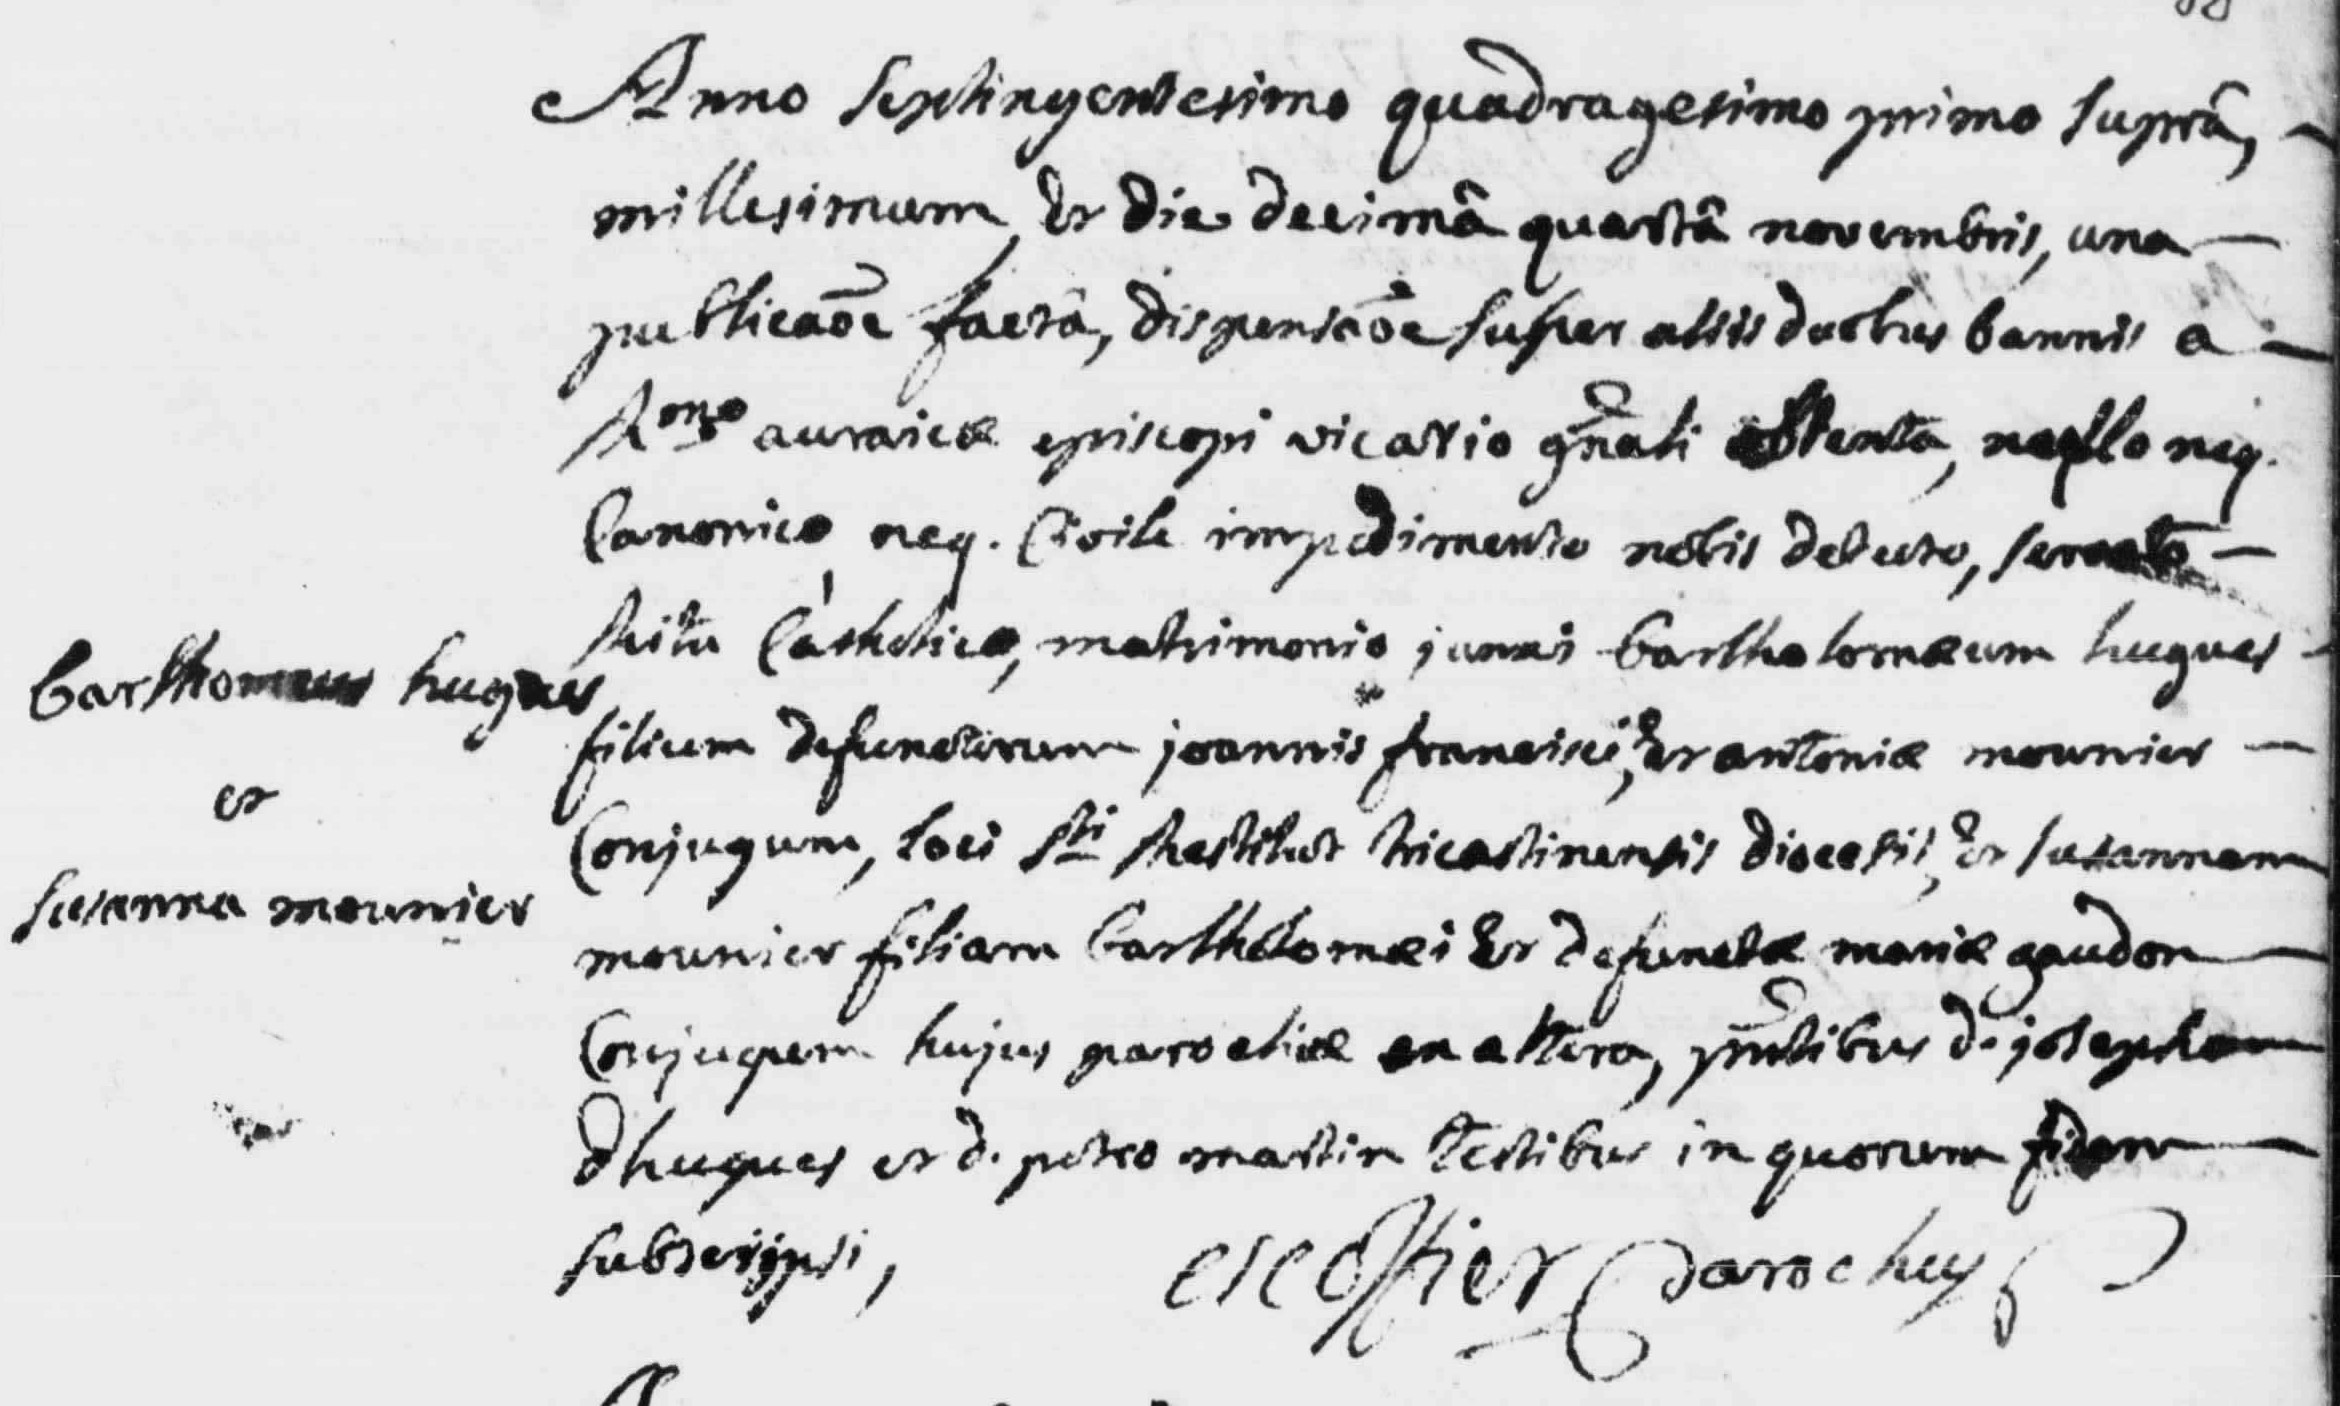 Anno septingentesimo quadragesimo primo suprâ,
millesimum, et die decimâ quartâ novembris, una
publicaõe factâ, dispensaõe super aliis duobus bannis a
Rmo auraicæ episcopi vicario gñali obtenta, nullo neq.
Canonico, neq. Civile impedimento nobis detecto, servato
ritu Catholico, matrimonio junxi bartholomæum hugues
filium defunctorum joannis francisci, et antoniæ mounier
bartholomeus hugues
et
susanna mounier
Conjugum, loci Sti restitut tricastinensis diocesis, et susannam
mounier filiam bartholomæi et defunctæ mariæ gaudon
Conjugum hujus parochiæ ex altera, pñtibus d. josepho
d hugues et d. petro martin testibus in quorum fidem
subscripsi,
escoffier parochus